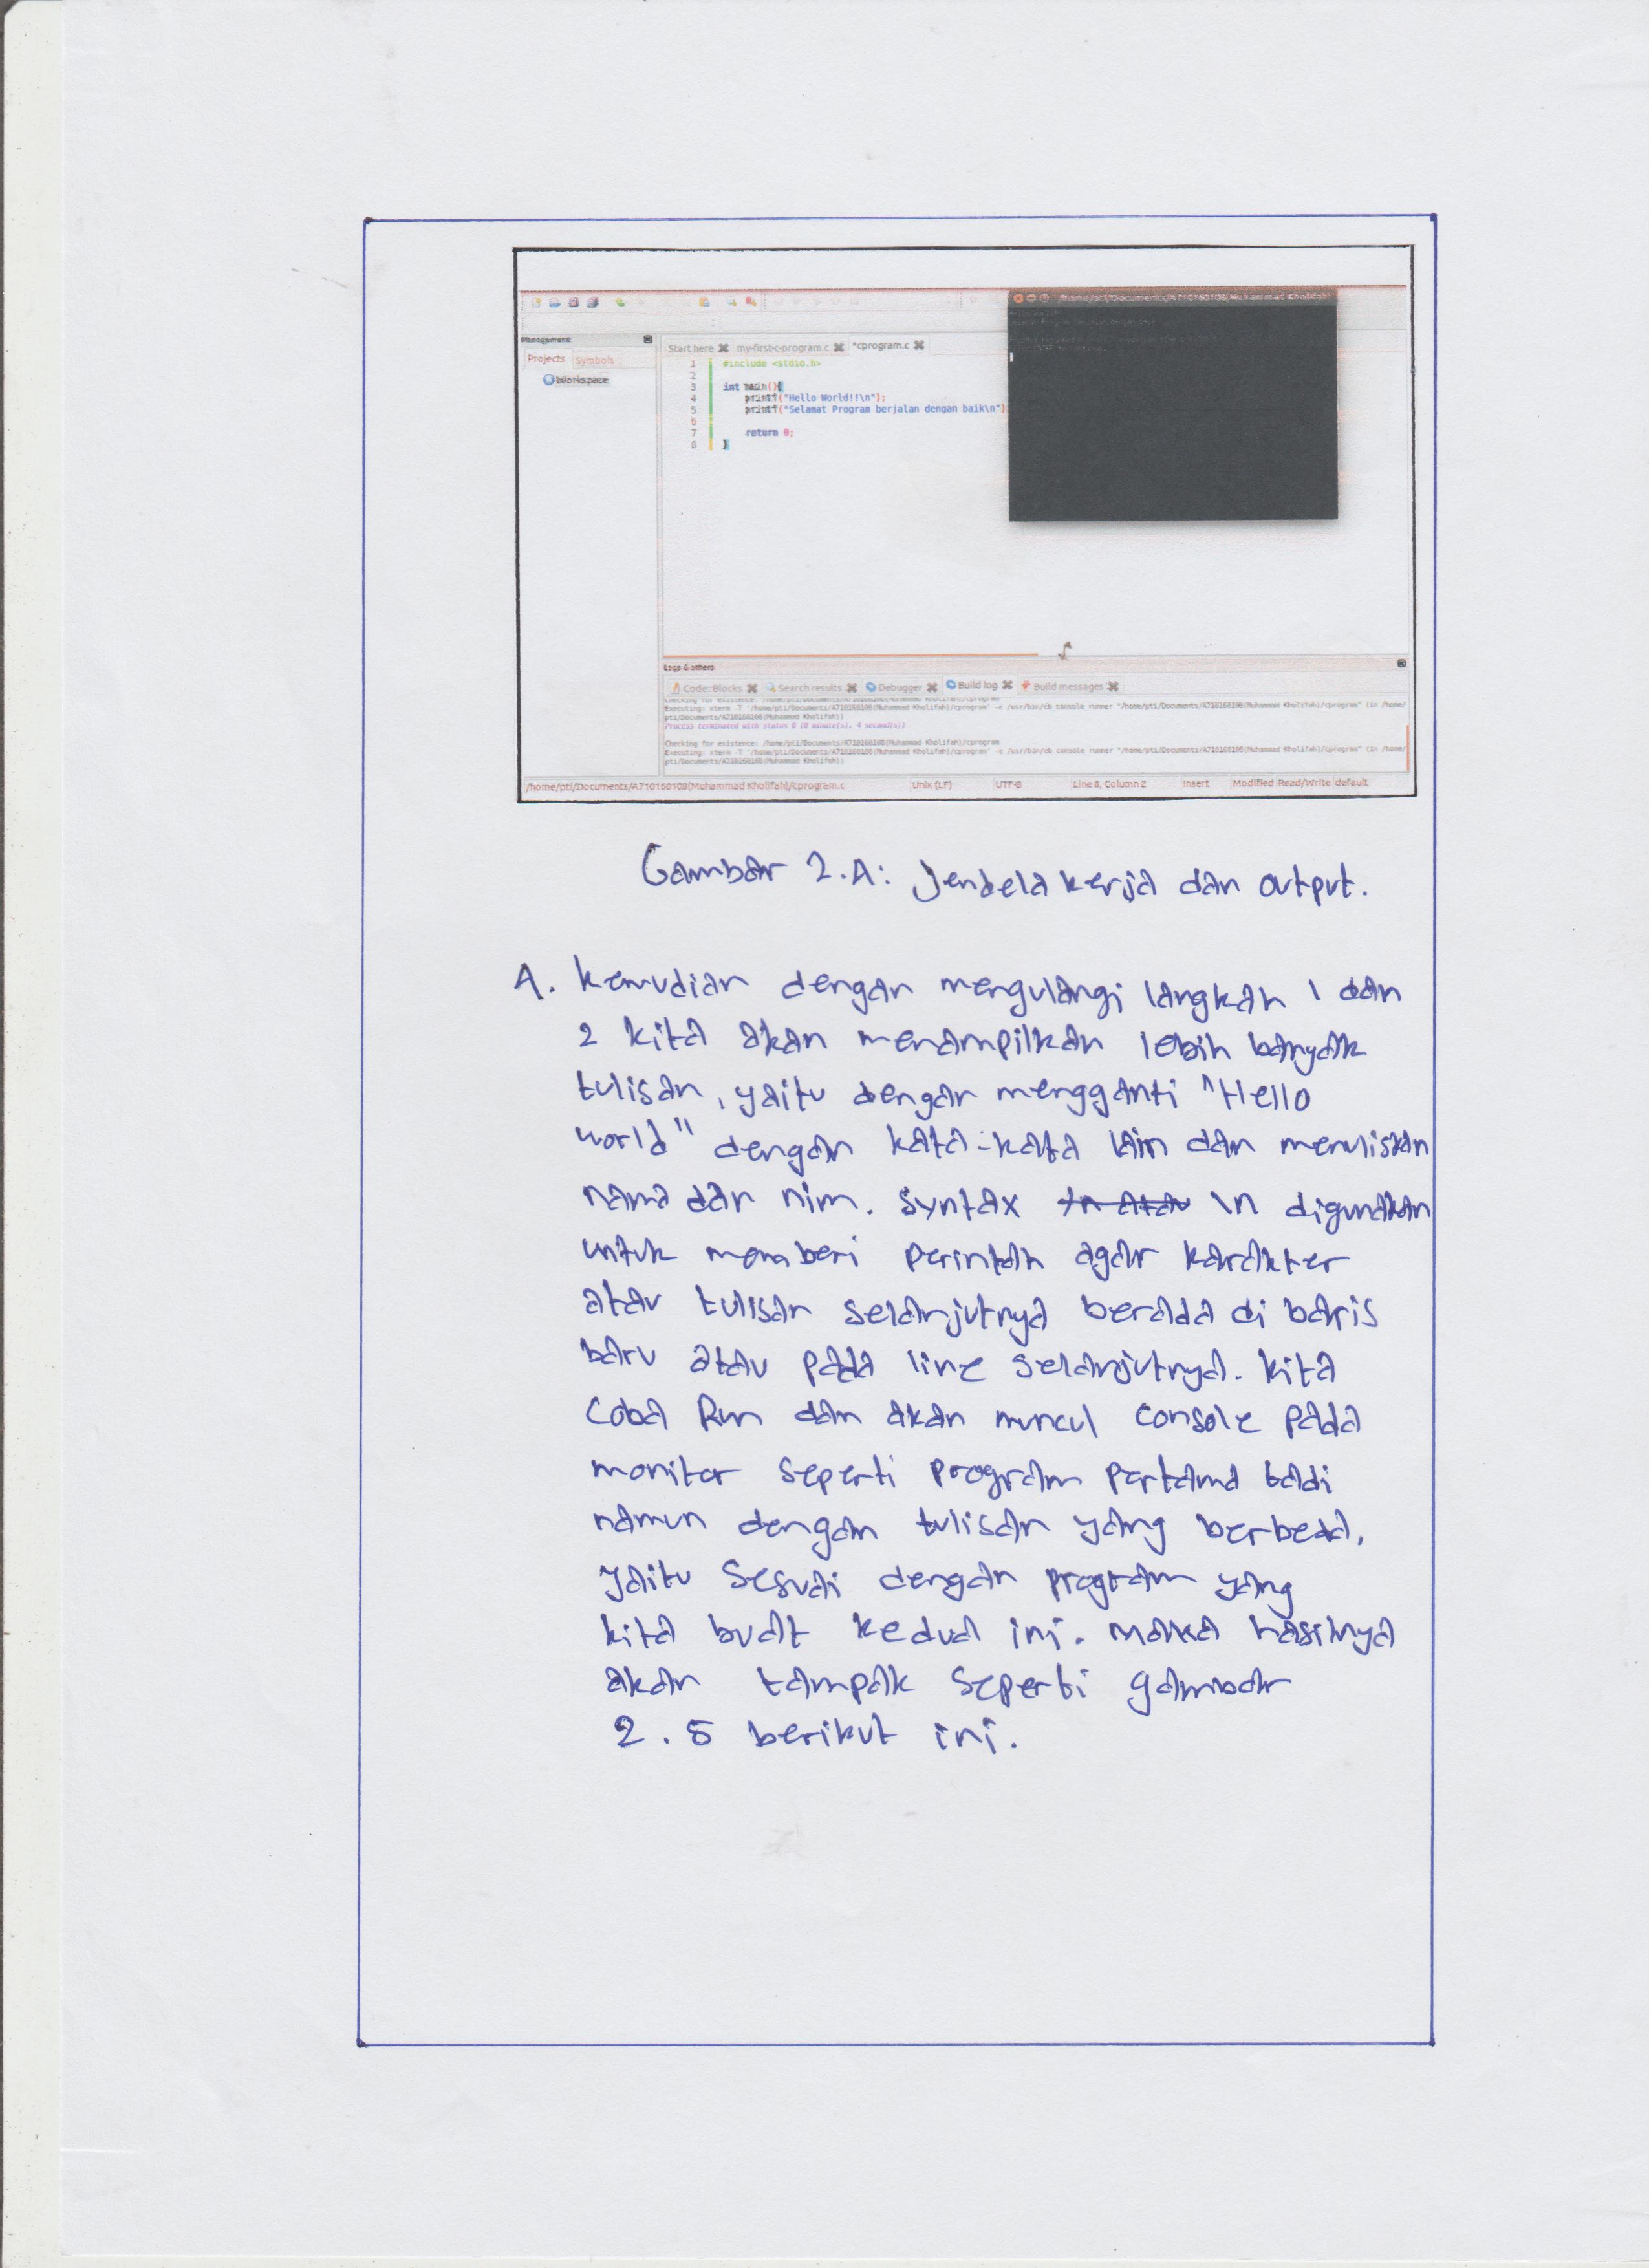 /home/pti/Documents/A710160108(Muhammad Kholifah)
Management
Projects Symbols
Workspace
Start here my-first-c-program.c *cprogram.c
1 #include <stdio.h>
2
3 int main(){
4 printf("Hello World!!\n");
5 printf("Selamat Program berjalan dengan baik\n")
6
7 return 0;
8 }
Logs & others
Code::Blocks Search results Debugger Build log Build messages
Checking for existence: /home/pti/Documents/A710160108(Muhammad Kholifah)/cprogram
Executing: xterm -T '/home/pti/Documents/A710160108(Muhammad Kholifah)/cprogram' -e /usr/bin/cb_console_runner "/home/pti/Documents/A710160108(Muhammad Kholifah)/cprogram" (in /home/
pti/Documents/A710160108(Muhammad Kholifah))
Process terminated with status 0 (0 minute(s), 4 second(s))
Checking for existence: /home/pti/Documents/A710160108(Muhammad Kholifah)/cprogram
Executing: xterm -T '/home/pti/Documents/A710160108(Muhammad Kholifah)/cprogram' -e /usr/bin/cb_console_runner "/home/pti/Documents/A710160108(Muhammad Kholifah)/cprogram" (in /home/
pti/Documents/A710160108(Muhammad Kholifah))
/home/pti/Documents/A710160108(Muhammad Kholifah)/cprogram.c Unix (LF) UTF-8 Line 8, Column 2 Insert Modified Read/Write default
Gambar 2.A: Jendela kerja dan output.
A. Kemudian dengan mengulangi langkah 1 dan
2 kita akan menampilkan lebih banyak
tulisan, yaitu dengan mengganti "Hello
world" dengan kata-kata lain dan menuliskan
nama dan nim. Syntax \n digunakan
untuk memberi perintah agar karakter
atau tulisan selanjutnya berada di baris
baru atau pada line selanjutnya. Kita
Coba Run dan akan muncul console pada
monitor seperti program pertama tadi
namun dengan tulisan yang berbeda,
yaitu sesuai dengan program yang
kita buat kedua ini. maka hasilnya
akan tampak seperti gambar
2.5 berikut ini.